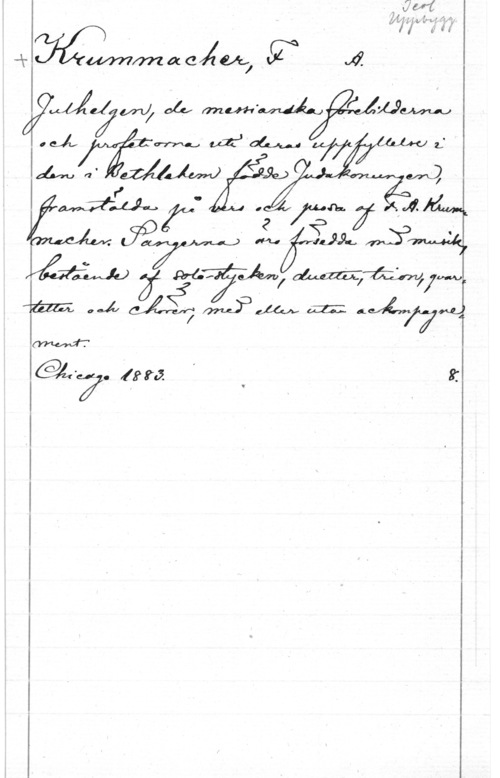 Teol
Uppbygg
+ Krummacher, F A.
Julhelgen, de messianska förebilderna
och profetiorna uti deras uppfyllelse i
den i Bethlehem födde Judakonungen,
framstälda på vers och prosa af F. A. Krum-
macher. Sångerna äro försedda med musik,
bestående af solo-stycken, duetter, trior, quar-
tetter och chörer, med eller utan ackompagne-
ment.
Chicago 1883. 8.